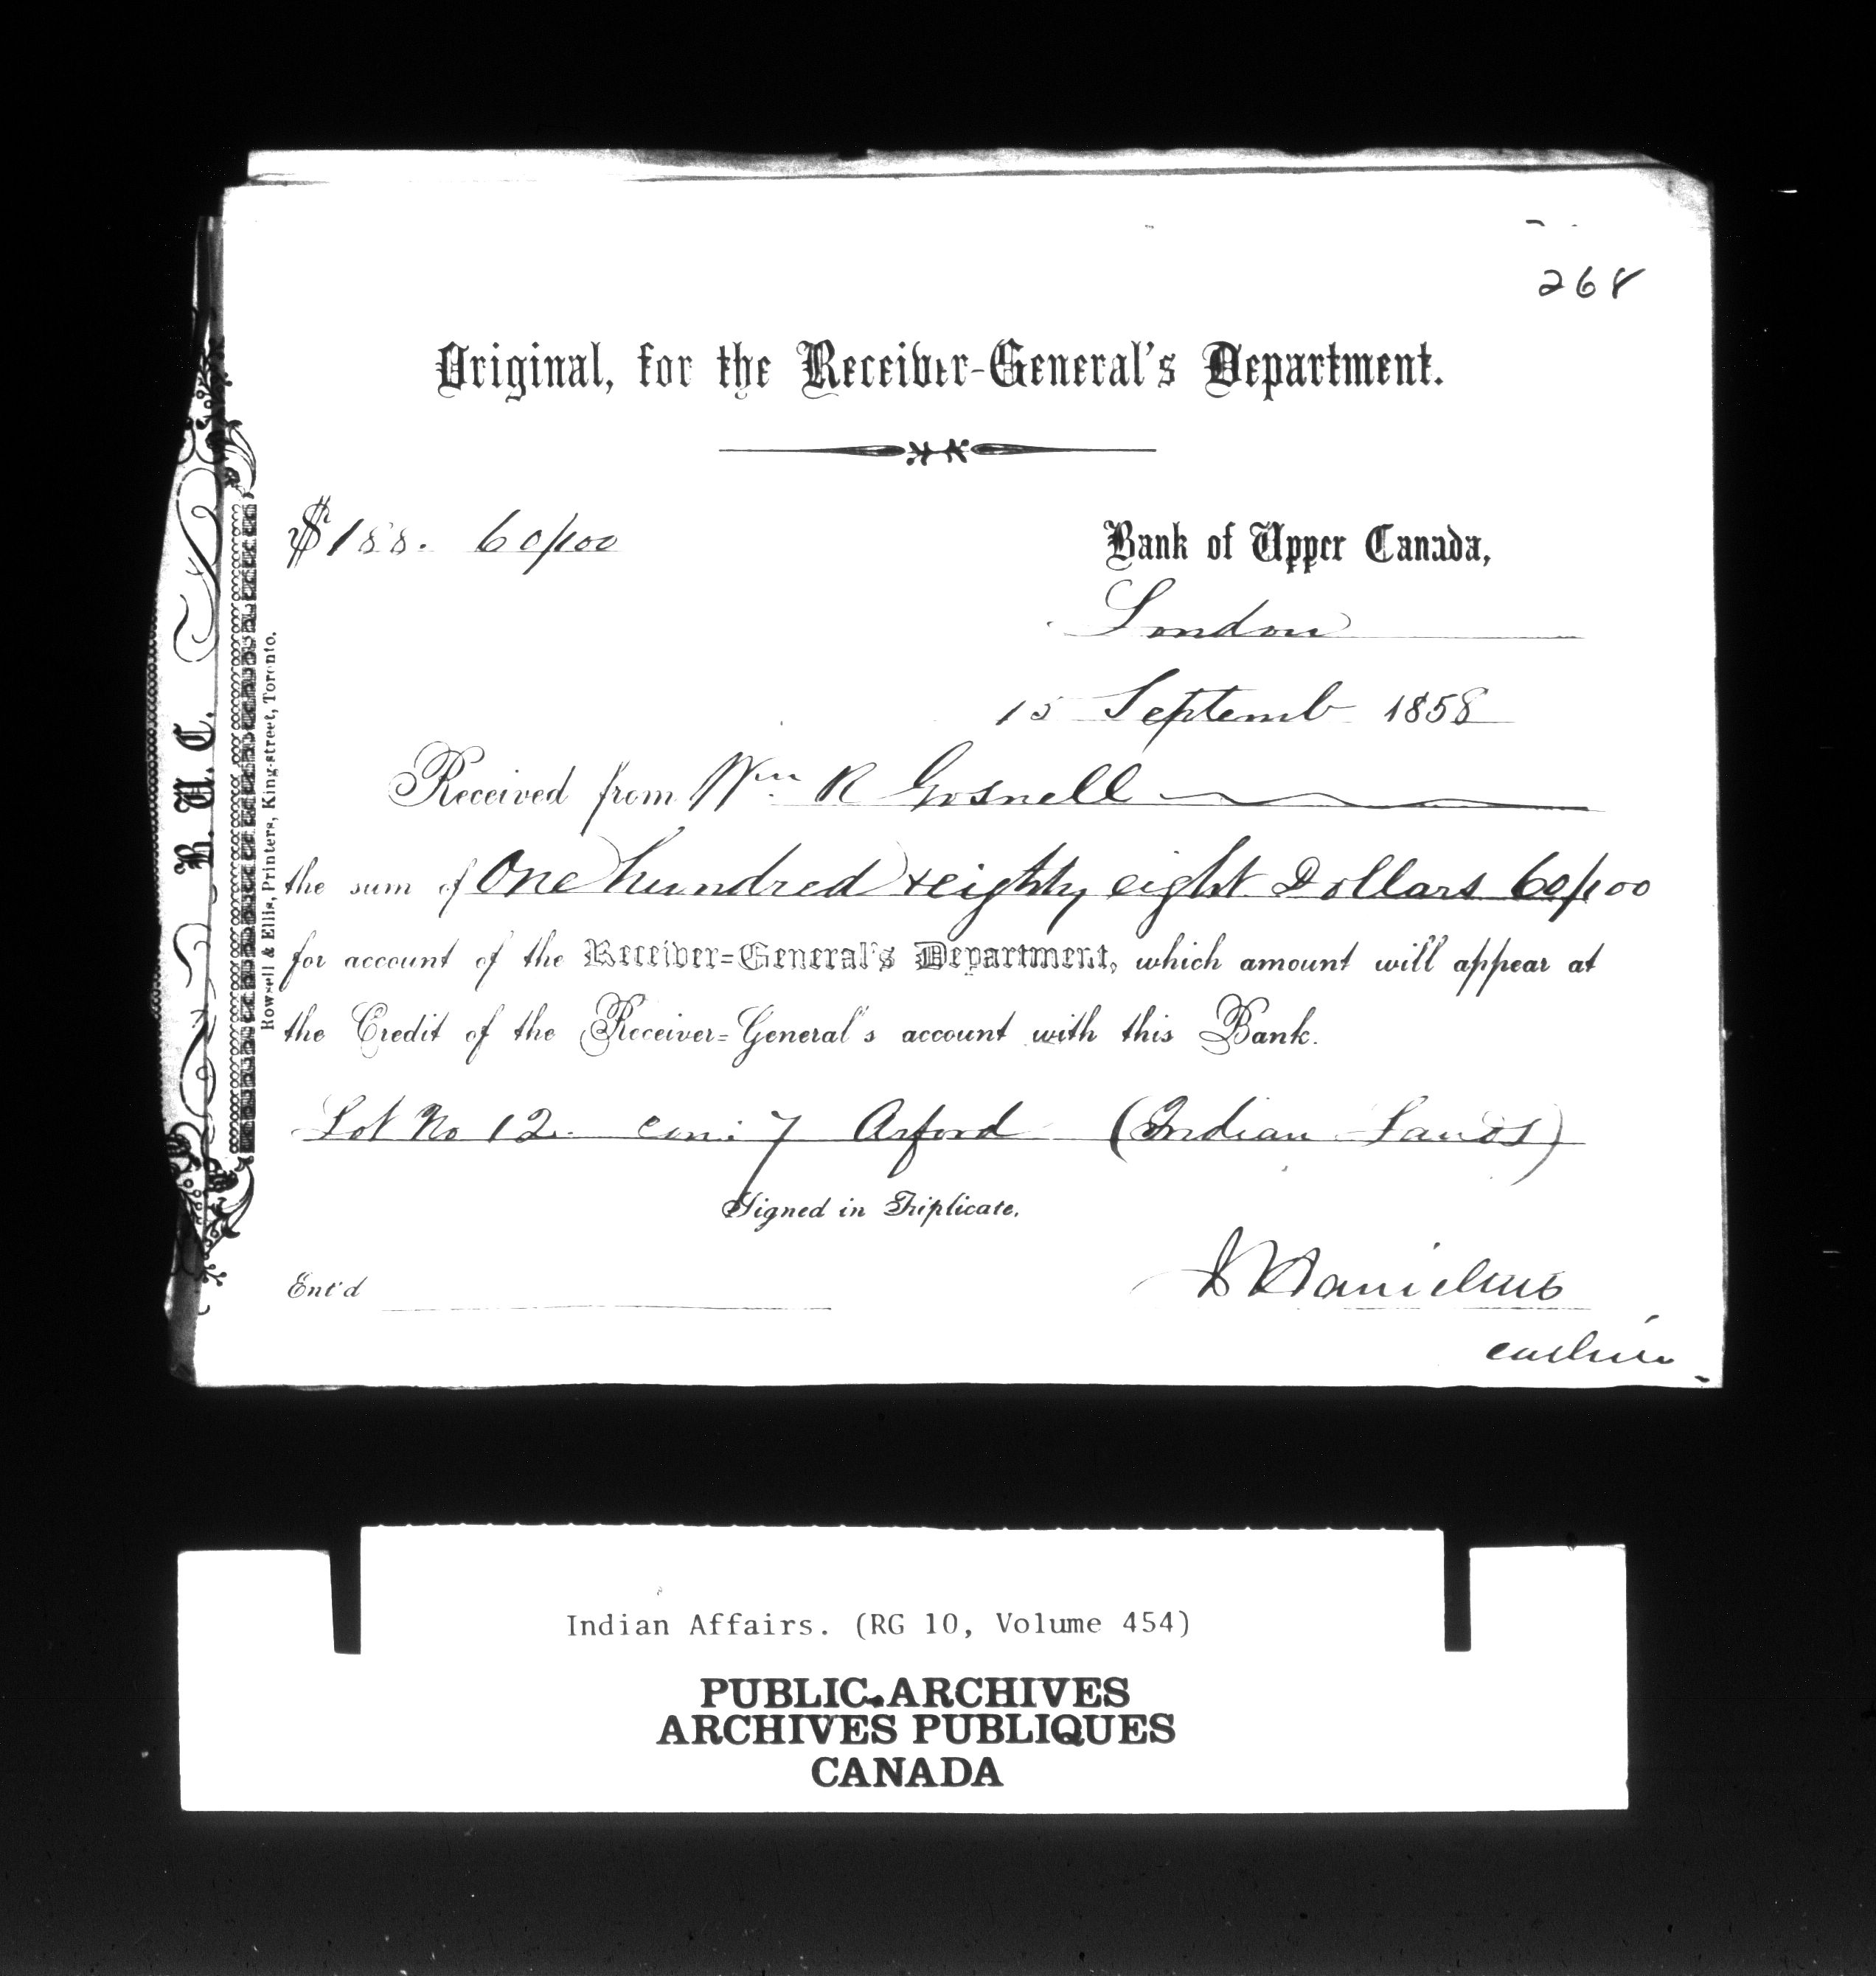 268
Original, for the Receiver-General's Department.
$188. 60/100
Bank of Upper Canada,
London
15 Septemb 1858
Received from Wm R Gosnell
the sum of One hundred & eighty eight Dollars 60/100
for account of the Receiver-General's Department, which amount will appear at
the Credit of the Receiver-General's account with this Bank.
Lot No 12. con: 7 Orford (Indian Lands)
Signed in Triplicate.
Ent'd
cashier
B. U. C.
Rowsell & Ellis, Printers, King-street, Toronto.
Indian Affairs. (RG 10, Volume 454)
PUBLIC ARCHIVES
ARCHIVES PUBLIQUES
CANADA